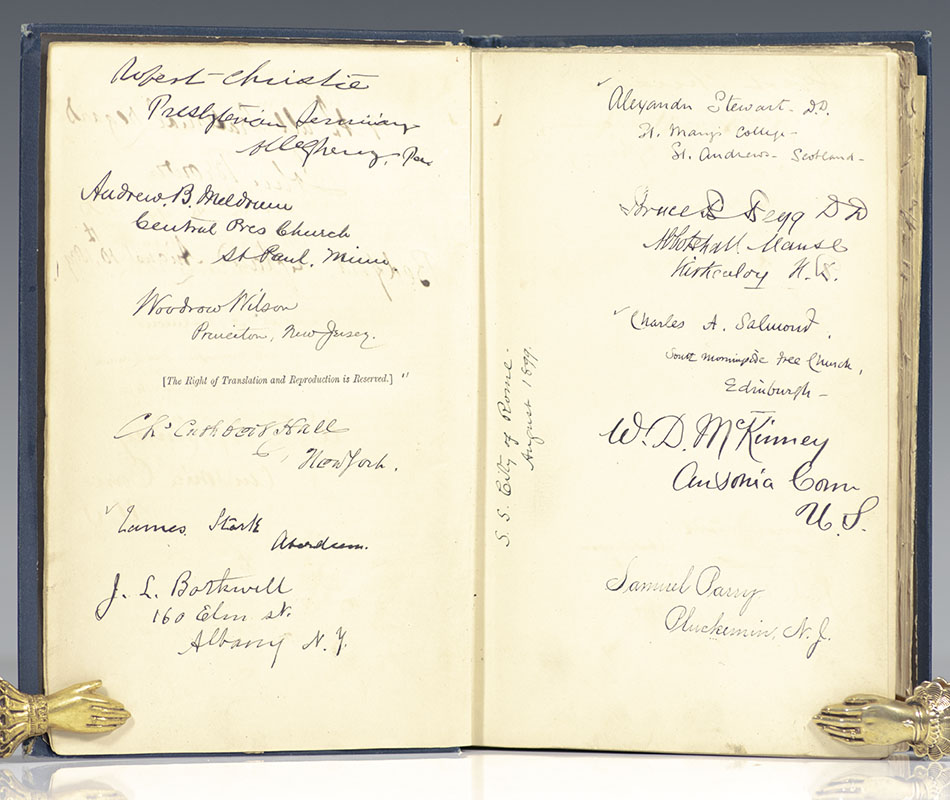 Robert Christie
Presbyterian Seminary
Allegheny, Pa
Andrew. B. Meldrum
Central Pres Church
St Paul, Minn
Woodrow Wilson
Princeton, New Jersey.
[The Right of Translation and Reproduction is Reserved.]
Chs Cuthbert Hall
New York.
James Stark
Aberdeen.
J. L. Bothwell
160 Elm St.
Albany N. Y.
S. S. City of Rome.
August 1899.
Alexander Stewart. D.D.
St. Mary's College
St. Andrews Scotland
Bruce B Begg D D
Abbotshall Manse
Kirkcaldy N. B.
Charles A. Salmond,
South Morningside Free Church,
Edinburgh
W. D. McKinney
Ansonia Conn
U. S.
Samuel Parry
Pluckemin, N. J.